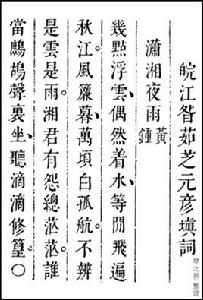 皖江昝茹芝元彥塡詞
瀟湘夜雨 黃鍾
幾點浮雲、偶然着水、等閒飛遍
秋江風簾暮、萬頃白孤航不辨
是雲是雨湘君有怨總茫茫誰
當鷓鴣聲裏坐、聽滴滴修篁〇